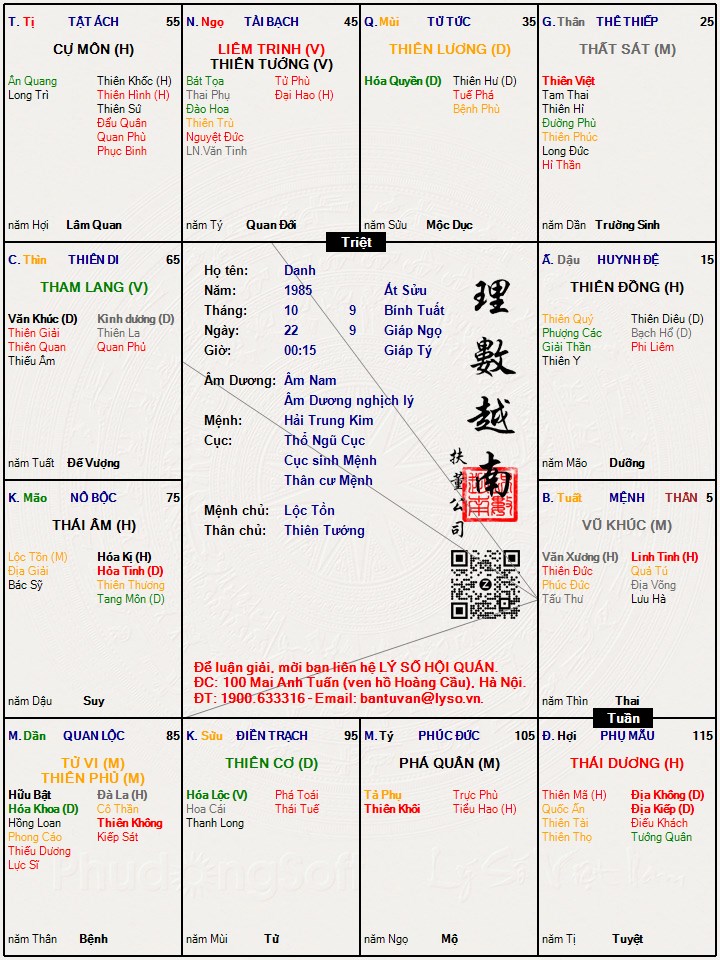 T. Tị TẬT ÁCH 55
CỰ MÔN (H)
Ân Quang Thiên Khốc (H)
Long Trì Thiên Hình (H)
Thiên Sứ
Đẩu Quân
Quan Phù
Phục Binh
năm Hợi Lâm Quan
N. Ngọ TÀI BẠCH 45
LIÊM TRINH (V)
THIÊN TƯỚNG (V)
Bát Tọa Tử Phù
Thai Phụ Đại Hao (H)
Đào Hoa
Thiên Trù
Nguyệt Đức
LN.Văn Tinh
năm Tý Quan Đới
Q. Mùi TỬ TỨC 35
THIÊN LƯƠNG (D)
Hóa Quyền (D) Thiên Hư (D)
Tuế Phá
Bệnh Phù
năm Sửu Mộc Dục
G. Thân THÊ THIẾP 25
THẤT SÁT (M)
Thiên Việt
Tam Thai
Thiên Hỉ
Đường Phù
Thiên Phúc
Long Đức
Hỉ Thần
năm Dần Trường Sinh
Triệt
C. Thìn THIÊN DI 65
THAM LANG (V)
Văn Khúc (D) Kình dương (D)
Thiên Giải Thiên La
Thiên Quan Quan Phủ
Thiếu Âm
năm Tuất Đế Vượng
Họ tên: Danh
Năm: 1985 Ất Sửu
Tháng: 10 9 Bính Tuất
Ngày: 22 9 Giáp Ngọ
Giờ: 00:15 Giáp Tý
Âm Dương: Âm Nam
Âm Dương nghịch lý
Mệnh: Hải Trung Kim
Cục: Thổ Ngũ Cục
Cục sinh Mệnh
Thân cư Mệnh
Mệnh chủ: Lộc Tồn
Thân chủ: Thiên Tướng
理數越南
扶董公司
Z
Để luận giải, mời bạn liên hệ LÝ SỐ HỘI QUÁN.
ĐC: 100 Mai Anh Tuấn (ven hồ Hoàng Cầu), Hà Nội.
ĐT: 1900.633316 - Email: bantuvan@lyso.vn.
Ấ. Dậu HUYNH ĐỆ 15
THIÊN ĐỒNG (H)
Thiên Quý Thiên Diêu (D)
Phượng Các Bạch Hổ (D)
Giải Thần Phi Liêm
Thiên Y
năm Mão Dưỡng
K. Mão NÔ BỘC 75
THÁI ÂM (H)
Lộc Tồn (M) Hóa Kị (H)
Địa Giải Hỏa Tinh (D)
Bác Sỹ Thiên Thương
Tang Môn (D)
năm Dậu Suy
B. Tuất MỆNH THÂN 5
VŨ KHÚC (M)
Văn Xương (H) Linh Tinh (H)
Thiên Đức Quả Tú
Phúc Đức Địa Võng
Tấu Thư Lưu Hà
năm Thìn Thai
Tuần
M. Dần QUAN LỘC 85
TỬ VI (M)
THIÊN PHỦ (M)
Hữu Bật Đà La (H)
Hóa Khoa (D) Cô Thần
Hồng Loan Thiên Không
Phong Cáo Kiếp Sát
Thiếu Dương
Lực Sĩ
năm Thân Bệnh
K. Sửu ĐIỀN TRẠCH 95
THIÊN CƠ (D)
Hóa Lộc (V) Phá Toái
Hoa Cái Thái Tuế
Thanh Long
năm Mùi Tử
M. Tý PHÚC ĐỨC 105
PHÁ QUÂN (M)
Tả Phụ Trực Phù
Thiên Khôi Tiểu Hao (H)
năm Ngọ Mộ
Đ. Hợi PHỤ MẪU 115
THÁI DƯƠNG (H)
Thiên Mã (H) Địa Không (D)
Quốc Ấn Địa Kiếp (D)
Thiên Tài Điếu Khách
Thiên Thọ Tướng Quân
năm Tị Tuyệt